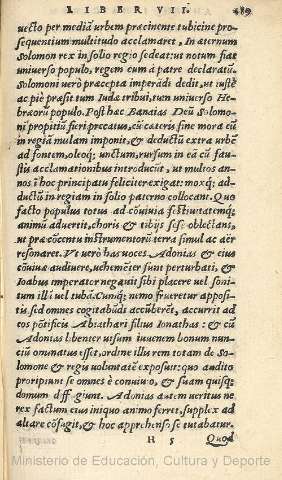 LIBER VII. 489
uecto per mediã urbem præcinente tubicine pro=
sequentium multitudo acclamaret, In æternum
Solomon rex in solio regio sedeat: ut notum fiat
uniuerso populo, regem eum à patre declaratũ.
Solomoni uerò præcepta imperãdi dedit, ut iustè
ac piè præsit tum Iudæ tribui, tum uniuerso He
bræorũ populo. Post hæc Banaias Deũ Solomo=
ni propitiũ fieri precatus, cũ cæteris sine mora eũ
in regiã mulam imponit, & deductũ extra urbẽ
ad fontem, oleoq; unctum, rursum in eã cũ fau=
stis acclamationibus introducũt, ut multos an=
nos ĩ hoc principatu feliciter exigat: moxq; ad=
ductũ in regiam in solio paterno collocant. Quo
facto populus totus ad cõuiuia festiuitatemq;
animũ aduertit, choris & tibijs sese oblectans,
ut præ cõcentu instrumentorũ terra simul ac aër
resonaret. Vt uerò has uoces Adonias & eius
cõuiuæ audiuere, uehemẽter sunt perturbati, &
Ioabus imperator negauit sibi placere uel soni=
tum illũ uel tubã. Cunq; nemo frueretur apposi=
tis sed omnes cogitabũdi accũberẽt, accurrit ad
eos põtificis Abiathari filius Ionathas: & cũ
Adonias libenter uisum iuuenem bonum nun=
ciũ nunciatus esset, ordine illis rem totam de So=
lomone & regis uoluntatẽ exposuit: quo audito
proripiunt se omnes è conuiuio, & suam quisq;
domum diffugiunt. Adonias autem ueritus ne
rex factum eius iniquo animo ferret, supplex ad
altare cõfugit, & hoc apprehenso se tutabatur.
H 5 Quod
Ministerio de Educación, Cultura y Deporte